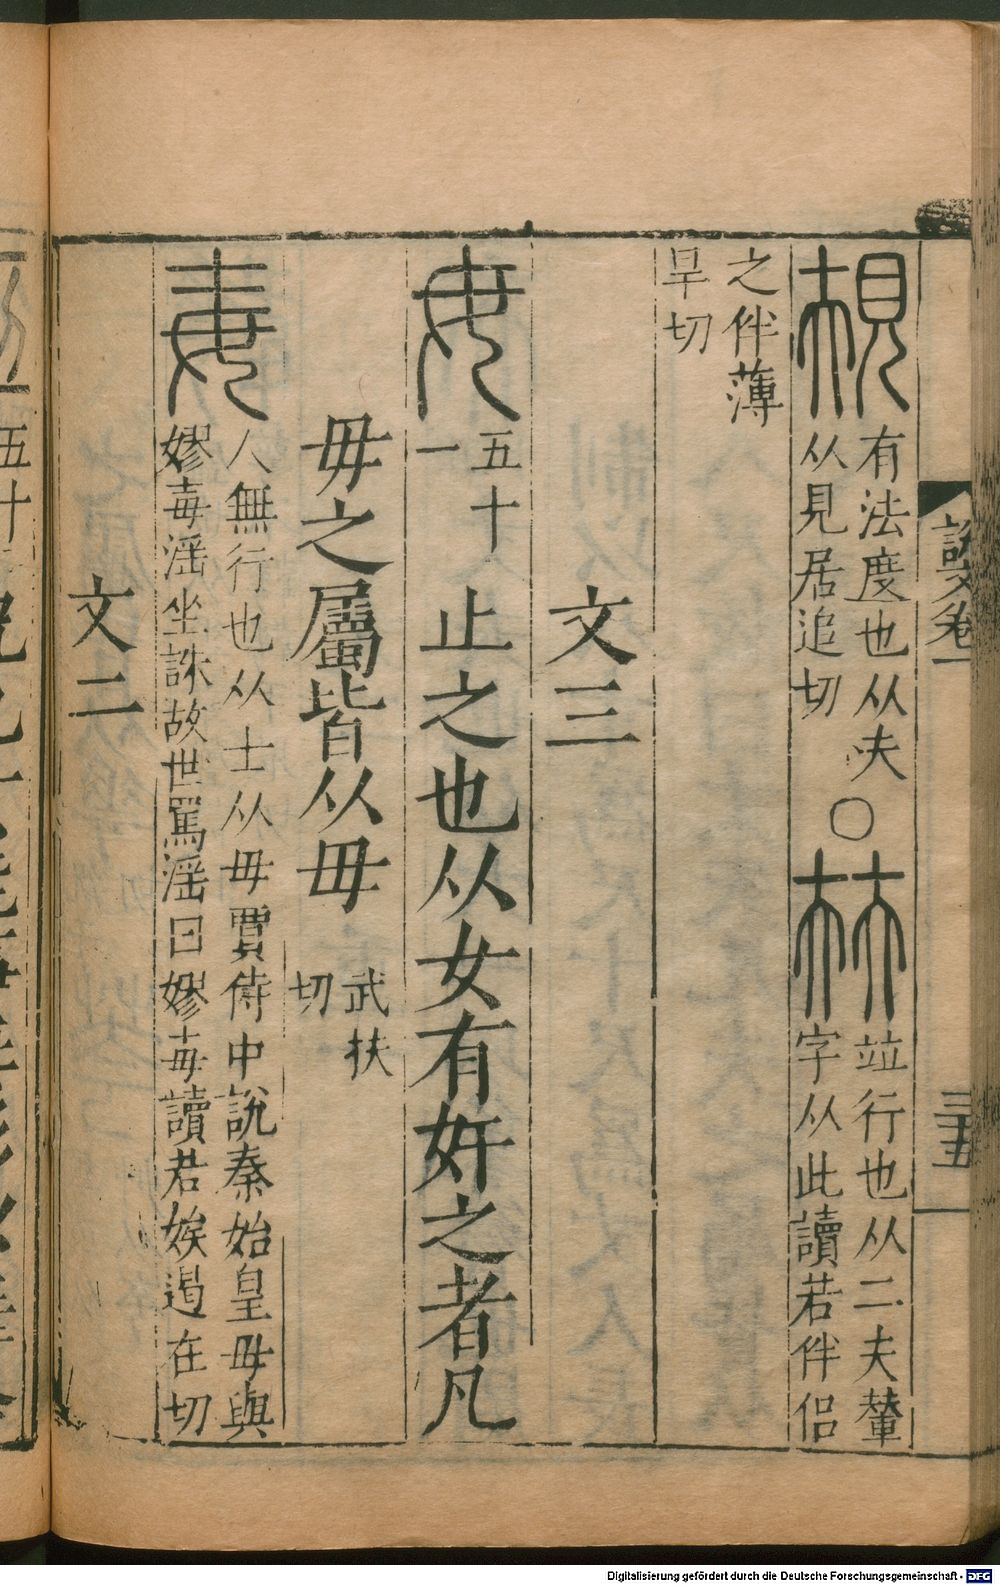 説文卷一
三十五
規 有法度也从夫
从見居追切
○ 㚘 竝行也从二夫輦
字从此讀若伴侣
之伴薄
旱切
文三
毋 五十
一
止之也从女有奸之者凡
毋之屬皆从毋
武扶
切
毐 人無行也从士从毋賈侍中說秦始皇母與
嫪毐滛坐誅故世罵滛曰嫪毐讀君娭遏在切
文二
五十
Digitalisierung gefördert durch die Deutsche Forschungsgemeinschaft - DFG